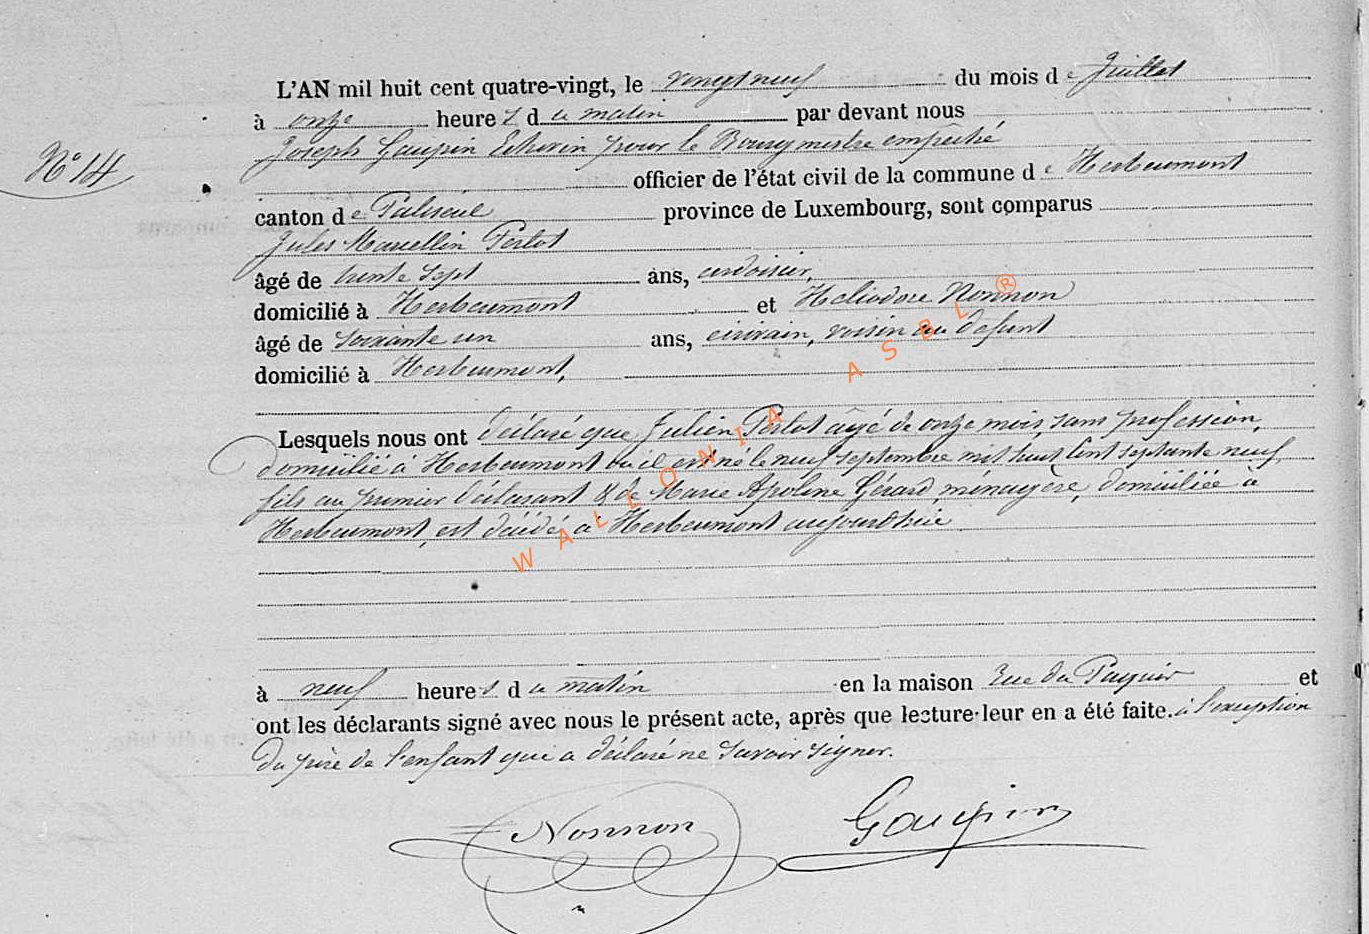 L'AN mil huit cent quatre-vingt, le vingt neuf du mois de Juillet
à onze heures du matin par devant nous
Joseph Gaupin Echevin pour le Bourgmestre empêché
N° 14
officier de l'état civil de la commune de Herbeumont
canton de Paliseul province de Luxembourg, sont comparus
Jules Marcellin Perlot
âgé de trente sept ans, ardoisier,
domicilié à Herbeumont et Héliodore Nonnon
âgé de soixante un ans, écrivain, voisin au défunt
domicilié à Herbeumont,
Lesquels nous ont déclaré que Julien Perlot âgé de onze mois, sans profession,
domicilié à Herbeumont où il est né le neuf septembre mil huit cent septante neuf
fils au premier déclarant & de Marie Apoline Gérard, ménagère, domiciliée à
Herbeumont, est décédé à Herbeumont aujourd'hui
à neuf heures du matin en la maison Rue du Paquis et
ont les déclarants signé avec nous le présent acte, après que lecture leur en a été faite. à l'exception
du père de l'enfant qui a déclaré ne savoir signer.
Nonnon Gaupin
WALLONIA ASBL ®